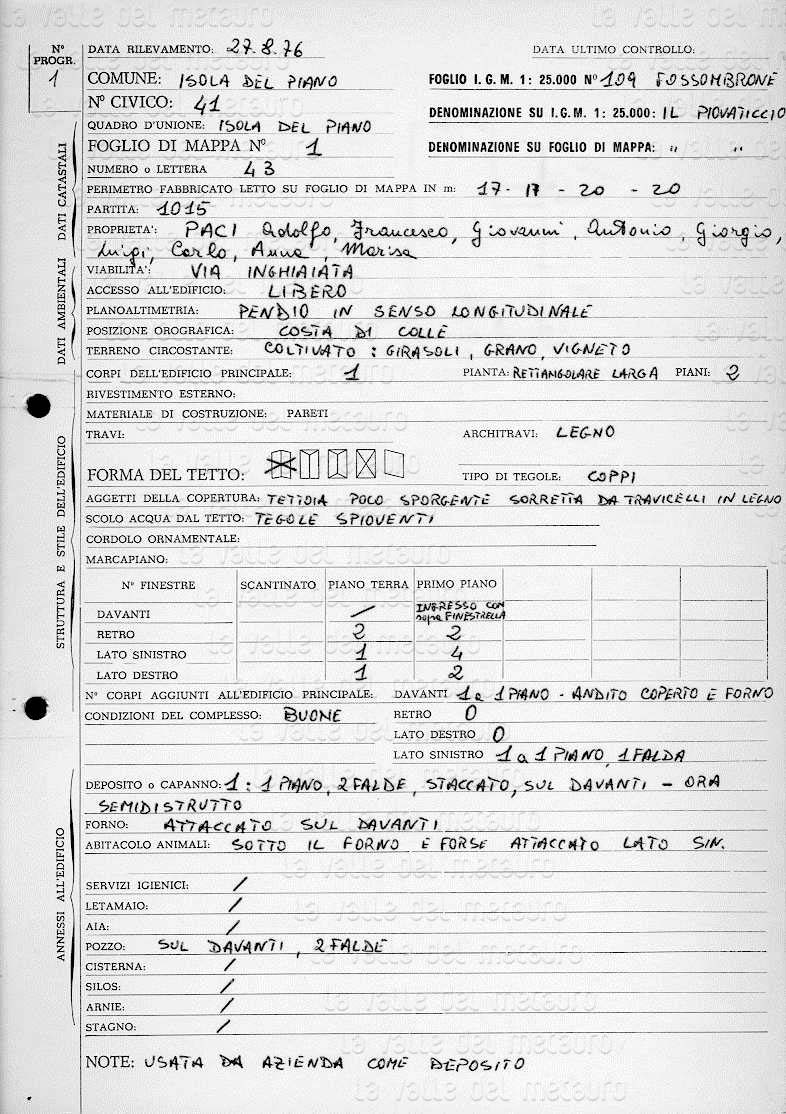 La valle del metauro
N° PROGR.
1
DATA RILEVAMENTO: 27.8.76
DATA ULTIMO CONTROLLO:
COMUNE: ISOLA DEL PIANO
FOGLIO I.G.M. 1: 25.000 N° 109 FOSSOMBRONE
N° CIVICO: 41
DENOMINAZIONE SU I.G.M. 1: 25.000: IL PIOVATICCIO
QUADRO D'UNIONE: ISOLA DEL PIANO
FOGLIO DI MAPPA N° 1
DENOMINAZIONE SU FOGLIO DI MAPPA: " "
NUMERO o LETTERA 43
PERIMETRO FABBRICATO LETTO SU FOGLIO DI MAPPA IN m: 17 - 17 - 20 - 20
DATI CATASTALI
PARTITA: 1015
PROPRIETA': PACI Adolfo, Francesco, Giovanni, Antonio, Giorgio,
Luigi, Carlo, Anna, Marisa
DATI AMBIENTALI
VIABILITA': VIA INGHIAIATA
ACCESSO ALL'EDIFICIO: LIBERO
PLANOALTIMETRIA: PENDIO IN SENSO LONGITUDINALE
POSIZIONE OROGRAFICA: COSTA DI COLLE
TERRENO CIRCOSTANTE: COLTIVATO: GIRASOLI, GRANO, VIGNETO
STRUTTURA E STILE DELL'EDIFICIO
CORPI DELL'EDIFICIO PRINCIPALE: 1 PIANTA: RETTANGOLARE LARGA PIANI: 2
RIVESTIMENTO ESTERNO:
MATERIALE DI COSTRUZIONE: PARETI
TRAVI: ARCHITRAVI: LEGNO
FORMA DEL TETTO: TIPO DI TEGOLE: COPPI
AGGETTI DELLA COPERTURA: TETTOIA POCO SPORGENTE SORRETTA DA TRAVICELLI IN LEGNO
SCOLO ACQUA DAL TETTO: TEGOLE SPIOVENTI
CORDOLO ORNAMENTALE:
MARCAPIANO:
N° FINESTRE SCANTINATO PIANO TERRA PRIMO PIANO
DAVANTI / INGRESSO CON sopra FINESTRELLA
RETRO 2 2
LATO SINISTRO 1 4
LATO DESTRO 1 2
N° CORPI AGGIUNTI ALL'EDIFICIO PRINCIPALE: DAVANTI 1 a 1 PIANO - ANDITO COPERTO E FORNO
CONDIZIONI DEL COMPLESSO: BUONE RETRO 0
LATO DESTRO 0
LATO SINISTRO 1 a 1 PIANO, 1 FALDA
ANNESSI ALL'EDIFICIO
DEPOSITO o CAPANNO: 1: 1 PIANO, 2 FALDE, STACCATO, SUL DAVANTI - ORA
SEMIDISTRUTTO
FORNO: ATTACCATO SUL DAVANTI
ABITACOLO ANIMALI: SOTTO IL FORNO E FORSE ATTACCATO LATO SIN.
SERVIZI IGIENICI: /
LETAMAIO: /
AIA: /
POZZO: SUL DAVANTI, 2 FALDE
CISTERNA: /
SILOS: /
ARNIE: /
STAGNO: /
NOTE: USATA DA AZIENDA COME DEPOSITO